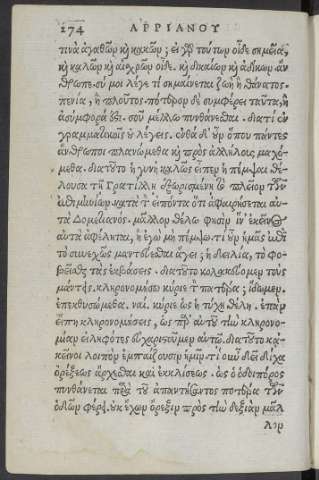 274 ΑΡΡΙΑΝΟΥ
τινὰ ἀγαθῶν κỳ κακῶν; εἰ γδ τούτων οἶδε σημεῖα·
κỳ καλῶν κỳ αἰσχρῶν οἶδε. κỳ δικαίων κỳ ἀδίκων. ἄν
θρωπε· σύ μοι λέγε τί σημαίνεται ζωὴ ἢ θάνατος·
πενία, ἢ πλοῦτος. πότερον δὲ συμφέρει ταῦτα, ἢ
ἀσύμφορά ἐστι. σοῦ μέλλω πυνθάνεσθαι. διατί ἐν
γραμματικοῖς οὐ λέγεις. ἐνθά δ' οὖν ὅπου πάντες
ἄνθρωποι πλανώμεθα κỳ πρὸς ἀλλήλους μαχό-
μεθα. διατοῦτο ἡ γυνὴ καλῶς εἶπεν ἡ πέμψαι θέ-
λουσα τῇ Γρατίλλῃ ἐξωρισμένῃ τὸ πλεῖον τῶν
ἐπιμηνίων. κατὰ τ εἰπόντα ὅτι ἀφαιρήσεται αὐ-
τὰ Δομετιανός. μᾶλλον θέλω φησὶν ἵν ἐκεῖνος
αὐτὰ ἀφέληται, ἢ ἐγὼ μὴ πέμψω. τί οὖν ἡμᾶς ἐπὶ
τὸ συνεχῶς μαντεύεσθαι ἄγει; ἡ δειλία, τὸ φο-
βεῖσθαι τὰς ἐκβάσεις. διατοῦτο κολακεύομεν τοὺς
μάντεις. κληρονομήσω κύριε τ πατέρα; ἴδωμεν.
ἐπεκθυσώμεθα. ναί. κύριε ὡς ἡ τύχη θέλῃ. ἐπὰν
εἴπῃ κληρονομήσεις, ὡς παρ αὐτοῦ τὴν κληρονο-
μίαν εἰληφότες εὐχαριστοῦμεν αὐτῷ. διατοῦτο κα-
κεῖνοι λοιπὸν ἐμπαίζουσιν ἡμῖν. τί οὖν δεῖ δίχα
ὀρέξεως ἔρχεσθαι καὶ ἐκκλίσεως. ὡς ὁ ὁδοιπόρος
πυνθάνεται παρὰ τοῦ ἀπαντήσαντος ποτέρα τῶν
ὁδῶν φέρει. οὐκ ἔχων ὄρεξιν πρὸς τὴν δεξιὰν μᾶλ
λον